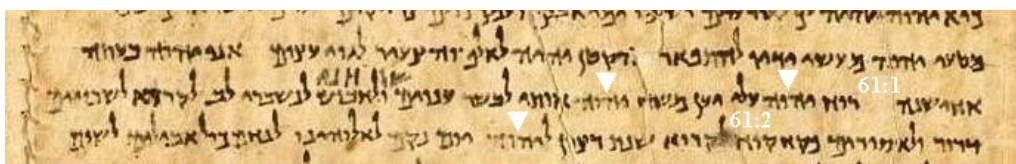 מטעי יהוה מעשי ידיו להתפאר הקטן יהיה לאלף והצעיר לגוי עצום אני יהוה בעתה
61:1
שלחני
אחישנה רוח יהוה עלי יען משח יהוה אותי לבשר ענוים ולחבוש לנשברי לב לקרוא לשבויים
61:2
דרור ולאסורים פקח קוח לקרוא שנת רצון ליהוה יום נקם לאלוהינו לנחם כול אבלים לשום